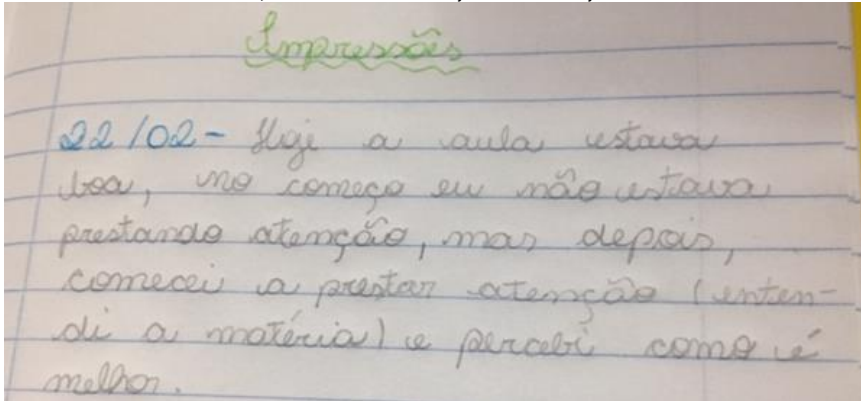 Impressões
22/02- Hoje a aula estava
boa, no começo eu não estava
prestando atenção, mas depois,
comecei a prestar atenção (enten-
di a matéria) e percebi como é
melhor.